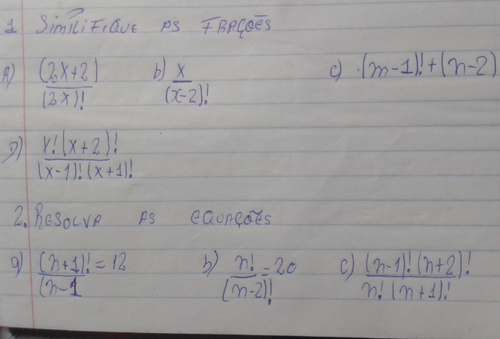 1 Similifique as Frações
A) (2x+2) / (2x)! b) x / (x-2)! c) (m-1)!+(n-2)
D) x!(x+2)! / (x-1)!(x+1)!
2. Resolva as equações
a) (n+1)! / (n-1 = 12 b) n! / (n-2)! = 20 c) (n-1)!(n+2)! / n!(n+1)!